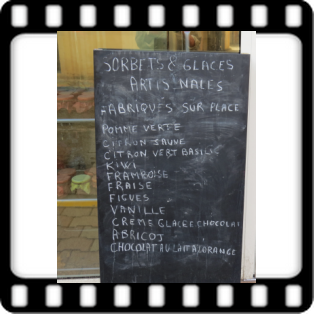 SORBETS & GLACES
ARTISANALES
FABRIQUÉS SUR PLACE
POMME VERTE
CITRON JAUVE
CITRON VERT BASILIC
KIWI
FRAMBOISE
FRAISE
FIGUES
VANILLE
CREME GLACEE CHOCOLAT
ABRICOT
CHOCOLAT AU LAIT A L'ORANGE